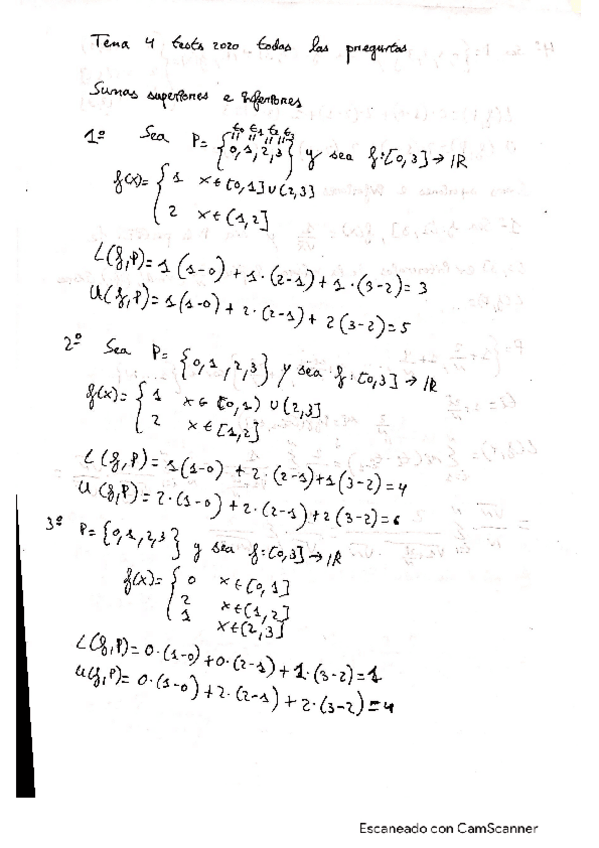 Tema 4 tests 2020 todas las preguntas
Sumas superiores e inferiores
1º Sea P= {0, 1, 2, 3} y sea f:[0,3]→IR
t₀ t₁ t₂ t₃
f(x)= { 1 x∈[0,1]∪(2,3]
2 x∈(1,2]
L(f,P)=1(1-0)+1·(2-1)+1·(3-2)=3
U(f,P)=1(1-0)+2·(2-1)+2(3-2)=5
2º Sea P= {0,1,2,3} y sea f:[0,3]→IR
f(x)= { 1 x∈[0,1)∪(2,3]
2 x∈[1,2]
L(f,P)=1(1-0)+2·(2-1)+1(3-2)=4
U(f,P)=2·(1-0)+2·(2-1)+2(3-2)=6
3º P={0,1,2,3} y sea f:[0,3]→IR
f(x)= { 0 x∈[0,1]
2 x∈(1,2]
1 x∈(2,3]
L(f,P)=0·(1-0)+0·(2-1)+1·(3-2)=1
U(f,P)=0·(1-0)+2·(2-1)+2·(3-2)=4
Escaneado con CamScanner